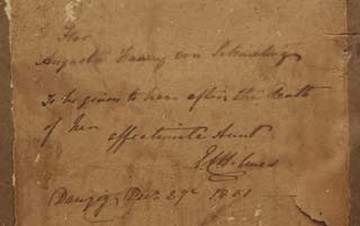 For
Augusta Fanny von
To be given to her after the death
of her affectionate Aunt
Danzig, Dec. 27th 1851